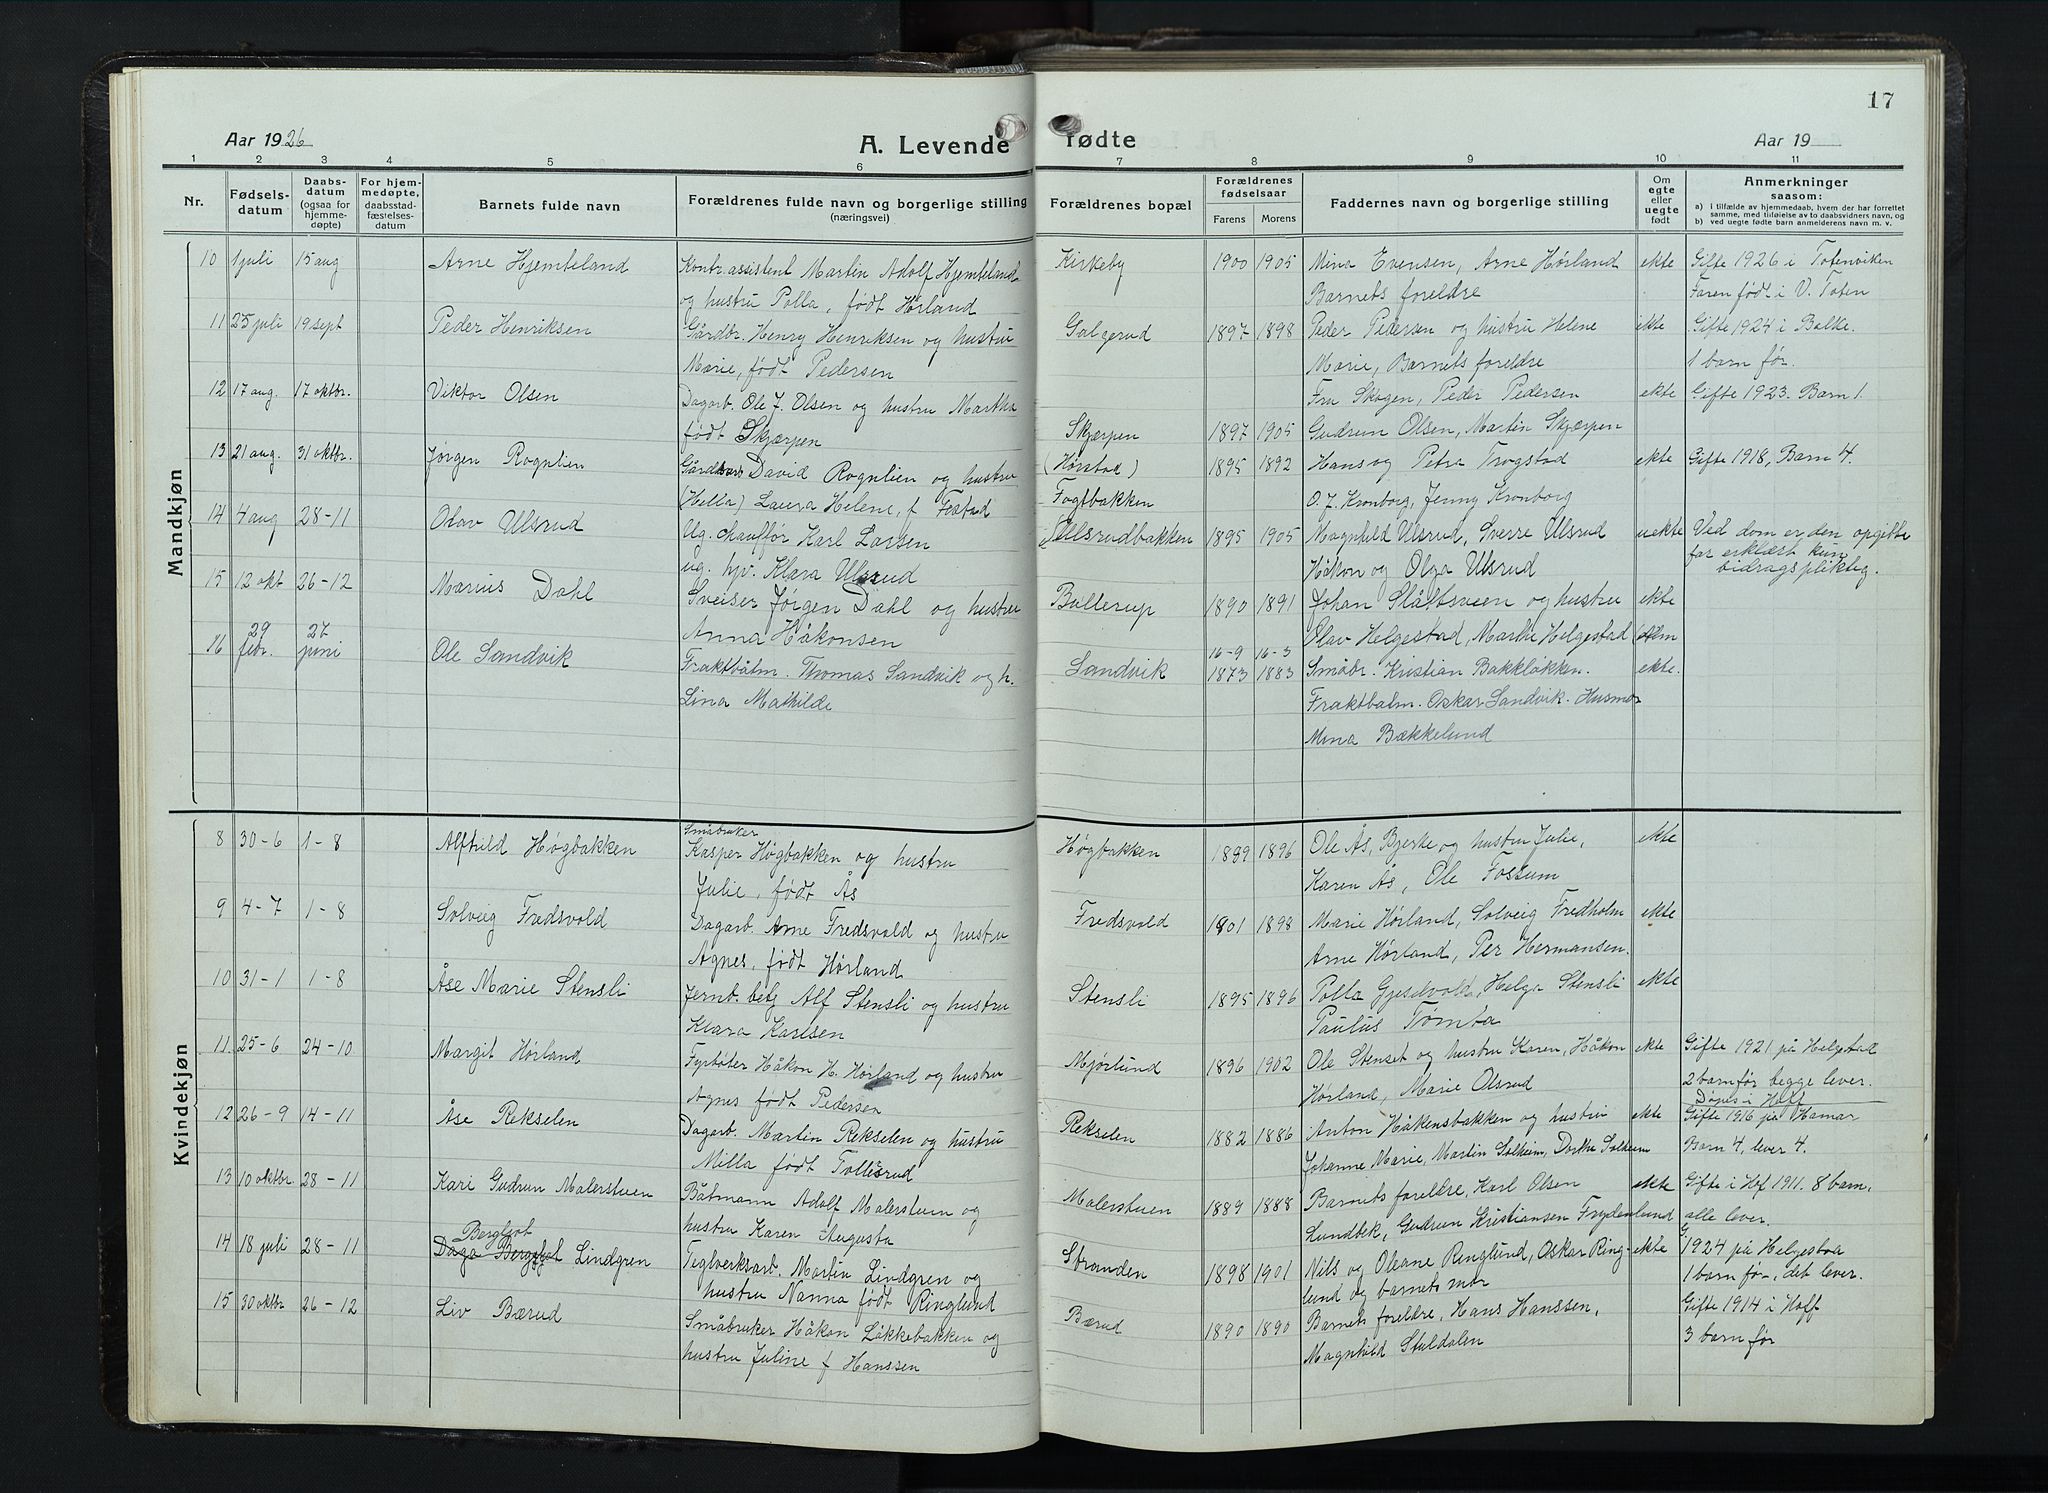 17
Aar 1926
A. Levende fødte
Aar 19
1 2 3 4 5 6 7 8 9 10 11
Nr.
Fødsels-
datum
Daabs-
datum
(ogsaa for
hjemme-
døpte)
For hjem-
medøpte,
daabsstad-
fæstelses-
datum
Barnets fulde navn
Forældrenes fulde navn og borgerlige stilling
(næringsvei)
Forældrenes bopæl
Forældrenes
fødselsaar
Farens Morens
Faddernes navn og borgerlige stilling
Om
egte
eller
uegte
født
Anmerkninger
saasom:
a) i tilfælde av hjemmedaab, hvem der har forrettet
samme, med tilføielse av to daabsvidners navn, og
b) ved uegte fødte barn anmelderens navn m. v.
Mandkjøn
10 1 juli 15 aug Arne Hjemteland Kontr. assistent Martin Adolf Hjemteland Kirkeby 1900 1905 Mina Evensen, Arne Hørland ekte Gifte 1926 i Totenviken
og hustru Polla, født Hørland Barnets foreldre Faren født i V. Toten
11 25 juli 19 sept Peder Henriksen Gårdbr. Henry Henriksen og hustru Galgerud 1897 1898 Peder Pedersen og hustru Helene ekte Gifte 1924 i Balke.
Marie, født Pedersen Marie, Barnets foreldre 1 barn før.
12 17 aug. 17 oktbr. Viktor Olsen Dagarb. Ole J. Olsen og hustru Martha Fru Skogen, Peder Pedersen ekte Gifte 1923. Barn 1.
født Skjærpen Skjærpen 1897 1905 Gudrun Olsen, Martin Skjærpen
13 21 aug. 31 oktbr. Jørgen Rognlien David Rognlien og hustru (Hørstad) 1895 1892 Hans og Petra Trogstad ekte Gifte 1918, Barn 4.
(Hella) Laura Helene, f Festad Fogtbakken O. J. Kronborg, Jenny Kronborg
14 4 aug 28-11 Olav Ulsrud Ug. chauffør Karl Larsen Ullsrudbakken 1895 1905 Magnhild Ulsrud, Sverre Ulsrud uekte Ved dom er den opgitte
ug. hpv. Klara Ulsrud Håkon og Olga Ulsrud far erklært kun
bidragspliktig.
15 12 okt 26-12 Marius Dahl Sveiser Jørgen Dahl og hustru Ballerup 1890 1891 Johan Slåttsveen og hustru ekte
Anna Håkonsen Olav Helgestad, Marthe Helgestad
16 29 febr. 27 juni Ole Sandvik Fraktbåtm. Thomas Sandvik og h. Sandvik 16-9 1873 16-3 1883 Småbr. Kristian Bakkløkken. ekte.
Lina Mathilde Fraktbåtm. Oskar Sandvik. Husmor
Mina Bækkelund
Kvindekjøn
8 30-6 1-8 Alfhild Høgbakken Småbruker
Kasper Høgbakken og hustru Høgbakken 1889 1896 Ole Ås, Bjerke og hustru Julie, ekte
Julie, født Ås Karen Ås, Ole Fossum
9 4-7 1-8 Solveig Fredsvold Dagarb. Arne Fredsvold og hustru Fredsvold 1901 1898 Marie Hørland, Solveig Fredholm ekte
Agnes, født Hørland Arne Hørland, Per Hermansen.
10 31-1 1-8 Åse Marie Stensli Jernb. betj Alf Stensli og hustru Stensli 1895 1896 Polla Gjeselvold, Helga Stensli ekte
Klara Karlsen Paulus Tømta
11 25-6 24-10 Margit Hørland Fyrbøter Håkon H. Hørland og hustru Mjørlund 1896 1902 Ole Stenset og hustru Karen, Håkon ekte Gifte 1921 på Helgestad
Agnes født Pedersen Hørland, Marie Olsrud 2 barn før begge lever.
Døpes i Hoff
12 26-9 14-11 Åse Rekselen Dagarb. Martin Rekselen og hustru Rekselen 1882 1886 Anton Håkensbakken og hustru ekte Gifte 1916 på Hamar
Milla født Tollesrud Johanne Marie, Martin Solheim, Dorthe Solheim Barn 4, lever 4.
13 10 oktbr 28-11 Kari Gudrun Malerstuen Båtmann Adolf Malerstuen og Malerstuen 1889 1888 Barnets foreldre, Karl Olsen ekte Gifte i Hof 1911. 8 barn,
hustru Karen Augusta Lundbek, Gudrun Kristiansen Frydenlund alle lever.
14 18 juli 28-11 Bergljot
Daga Bergljot Lindgren Teglverksarb. Martin Lindgren og Stranden 1898 1901 Nils og Oleane Ringlund, Oskar Ring- ekte G. 1924 på Helgestad
hustru Nanna født Ringlund lund og barnets mor 1 barn før, det lever.
15 30 oktbr 26-12 Liv Bærud Småbruker Håkon Løkkebakken og Bærud 1890 1890 Barnets foreldre, Hans Hanssen, Gifte 1914 i Hoff
hustru Juline f Hanssen Magnhild Stuldalen 3 barn før